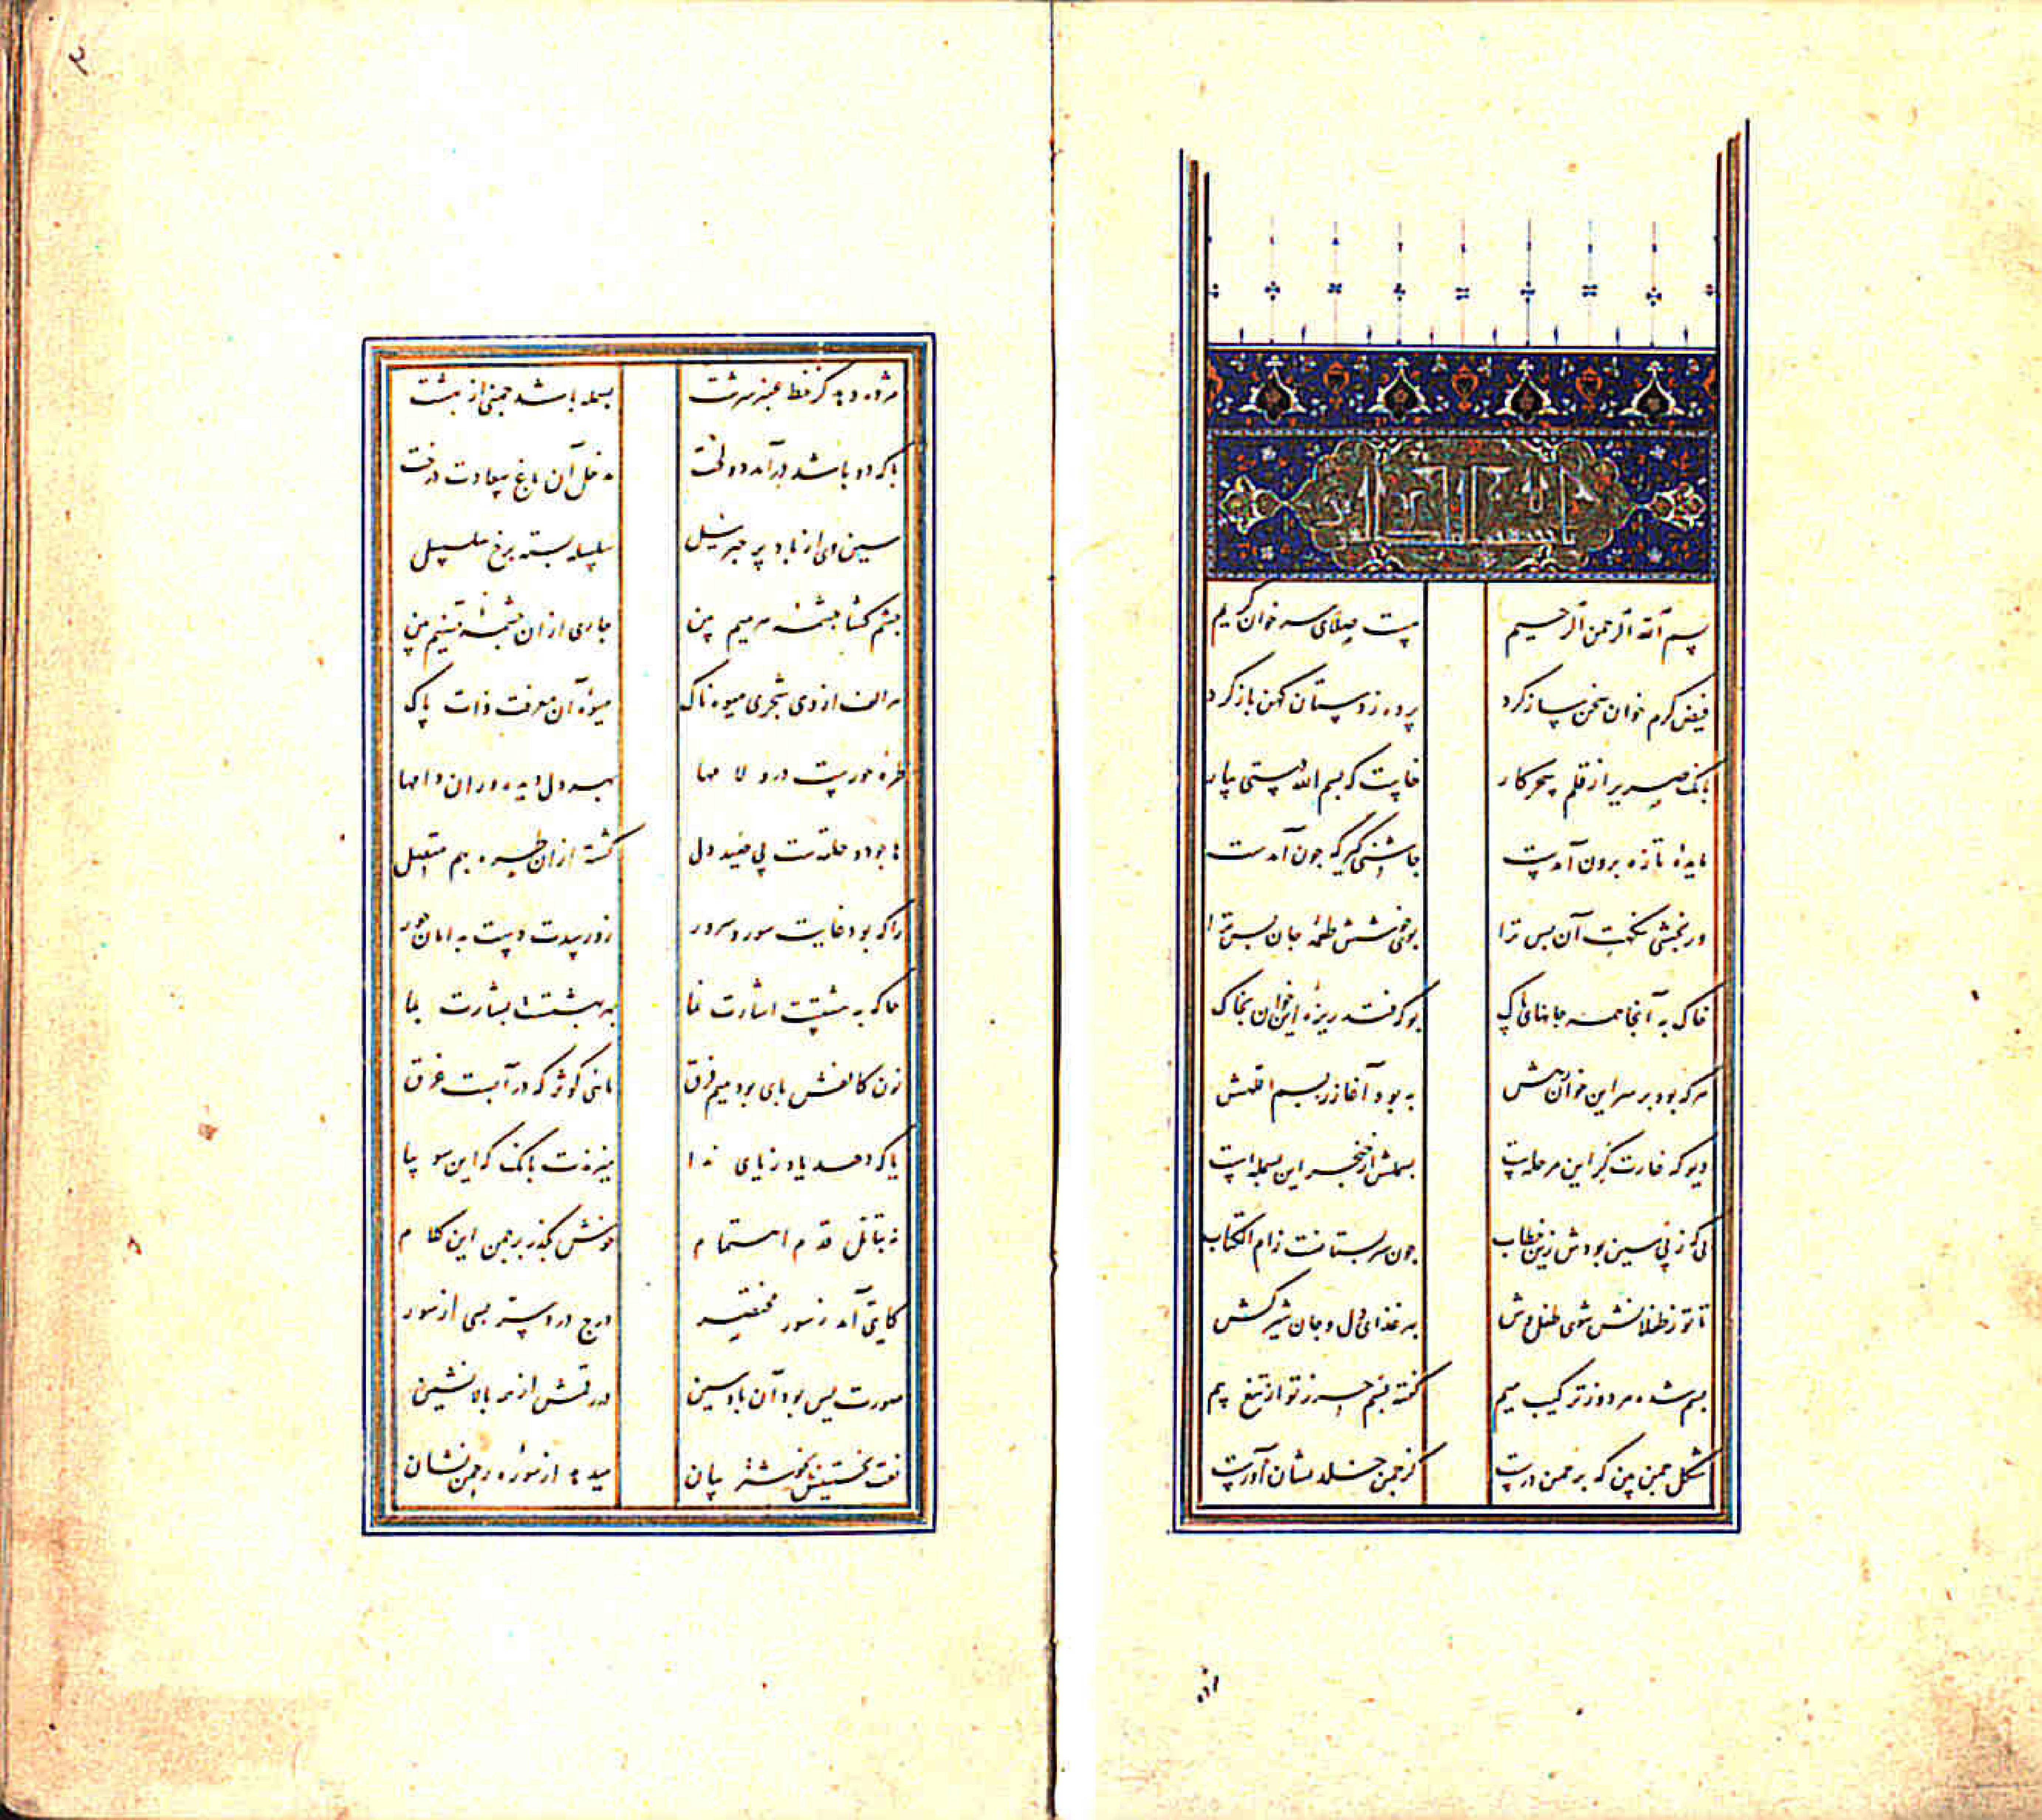 باسمه سبحانه
بسم الله الرحمن الرحیم هست صلای سر خوان کریم
فیض کرم خوان سخن ساز کرد پرده ز دستان کهن باز کرد
بانک صریر از قلم سحر کار خاست که بسم الله دستی بیار
مایدهٔ تازه برون آمدست چاشنی گیر که چون آمدست
ور نچشی نکهت آن بس ترا بوی خوشش طعمهٔ جان بس ترا
خاک به آنجا همه جانهای پاک بو که فتد ریزهٔ این خوان بخاک
هر که بود بر سر این خوان رهش به بود آغاز ز بسم اللهش
دیو که غارت گر این مرحله است بسملش از خنجر این بسمله است
بی کو ز پی سین بودش زین خطاب چون سر پستانت ز ام الکتاب
تا تو ز طفلانش شوی طفل وش به غذای دل و جان شیر کش
بسم شده هر دو ز ترکیب میم گفته بسم حرز تو از تیغ بیم
شکل چمن بین که برحمن درست کز چمن خلد نشان آورست
مژده دهد کز خط عنبر سرشت بسمله باشد چمنی از بهشت
با که دو باشد در آمد دو لخت مدخل آن باغ سعادت درخت
سین وی از باد پر جبرئیل سلسله بسته برخ سلسبیل
چشم گشا چشمهٔ هر میم بین جاری از ان چشمه تسنیم بین
هر الف از وی شجری میوه ناک میوهٔ آن معرفت ذات پاک
طرهٔ حورست درو لامها بهر دل اید دران دامها
ها چو دو حلقه ست پی صید دل گشته از ان طره بهم متصل
را که بود غایت سور و سرور زو رسدت دست به امان حور
حا که به هشتت اشارت نما به هشت بشارت نما
نون کالفش بای بود میم فرق ماهی کوثر که در آبست غرق
یا که دهد یاد ز یای ندا میزندت بانک که این سو بیا
نه بتأمل قدم اهتمام خوش بگذر بر چمن این کلام
کایتی آمد ز سور مختصر درج در و سر بسی از سور
صورت بس بود آن با و سین در رقمش از همه بالا نشین
میدهد از سوره رحمن نشان
۳